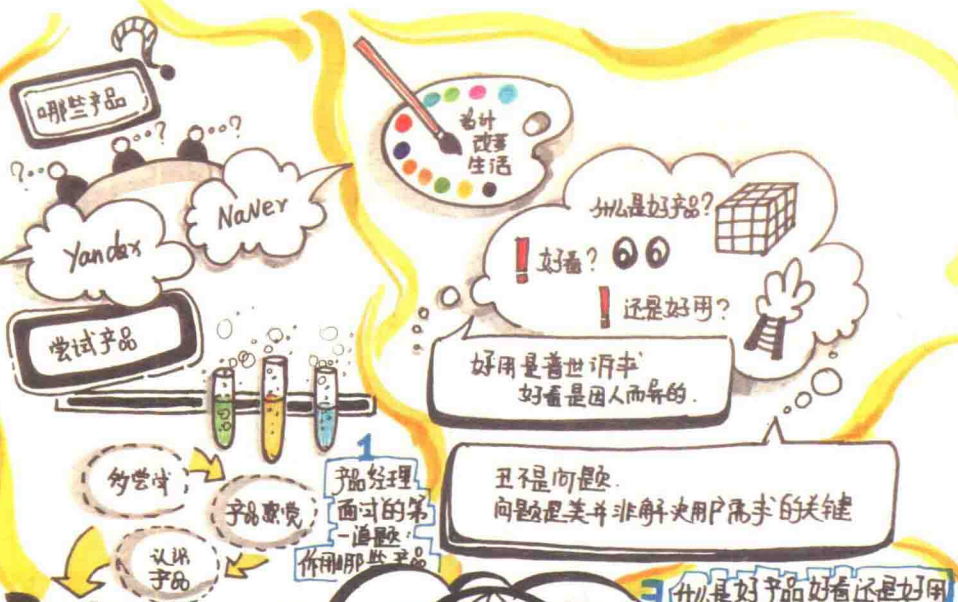 哪些产品
?...
...?
...?
Yandex
NaNer
尝试产品
多尝试
产品感觉
认识
产品
1
产品经理
面试的第
一道题:
你用哪些产品
设计
改变
生活
什么是好产品?
! 好看?
! 还是好用?
好用是普世诉求
好看是因人而异的.
丑不是问题.
问题是美并非解决用户需求的关键
2 什么是好产品好看还是好用